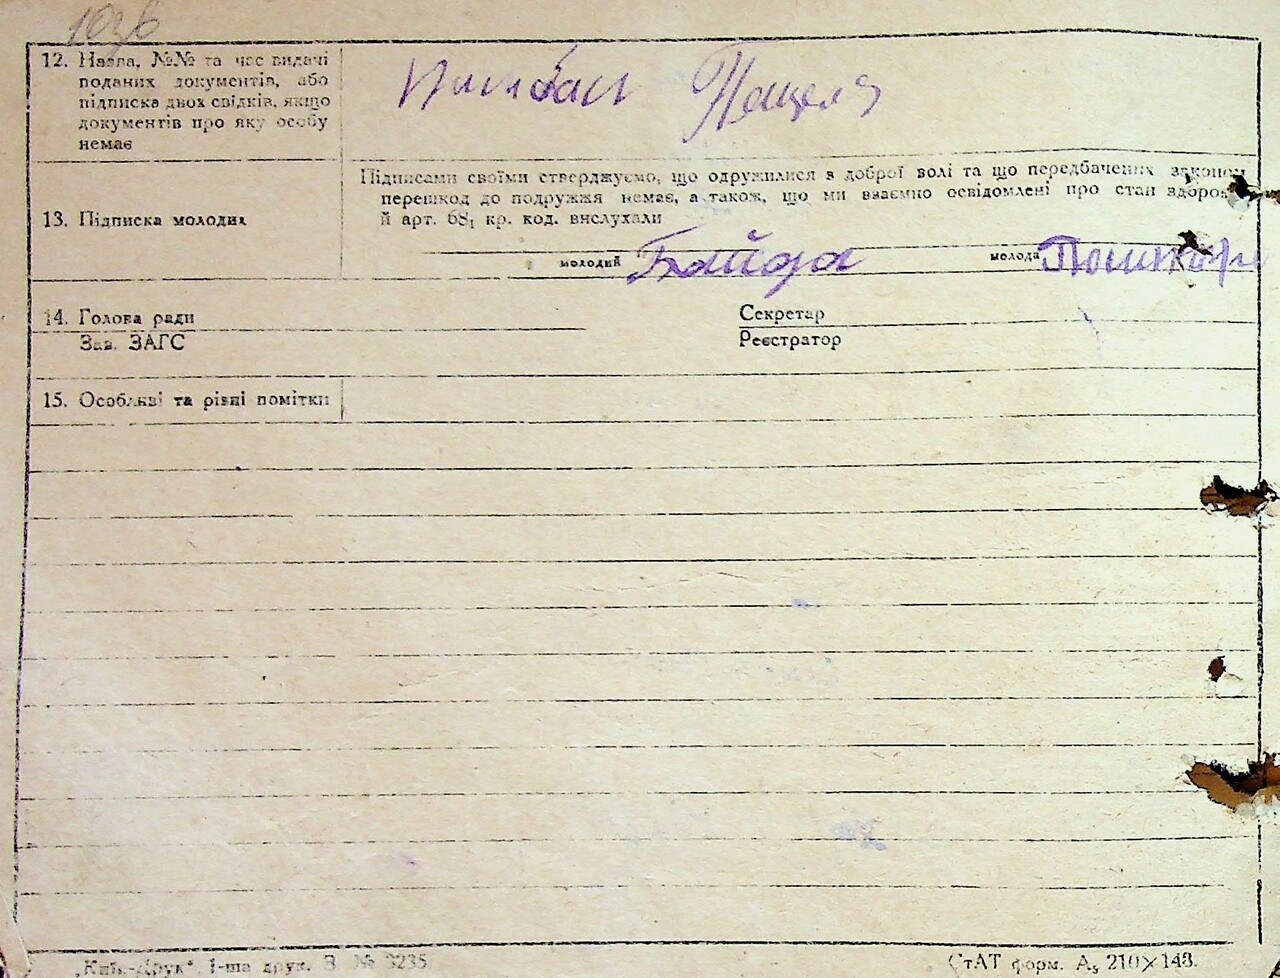 12. Назва, №№ та час видачі
поданих документів, або
підписка двох свідків, якщо
документів про яку особу
немає
Підписами своїми стверджуємо, що одружилися з доброї волі та що передбачених законом
перешкод до подружжя немає, а також, що ми взаємно освідомлені про стан здоров
й арт. 68₁ кр. код. вислухали
13. Підписка молодих
молодий Байда молода
14. Голова ради Секретар
Зав. ЗАГС Реєстратор
15. Особливі та різні помітки
„Київ-Друк“ 1-ша друк. З № 3235
СтАТ форм. А₅ 210×148.